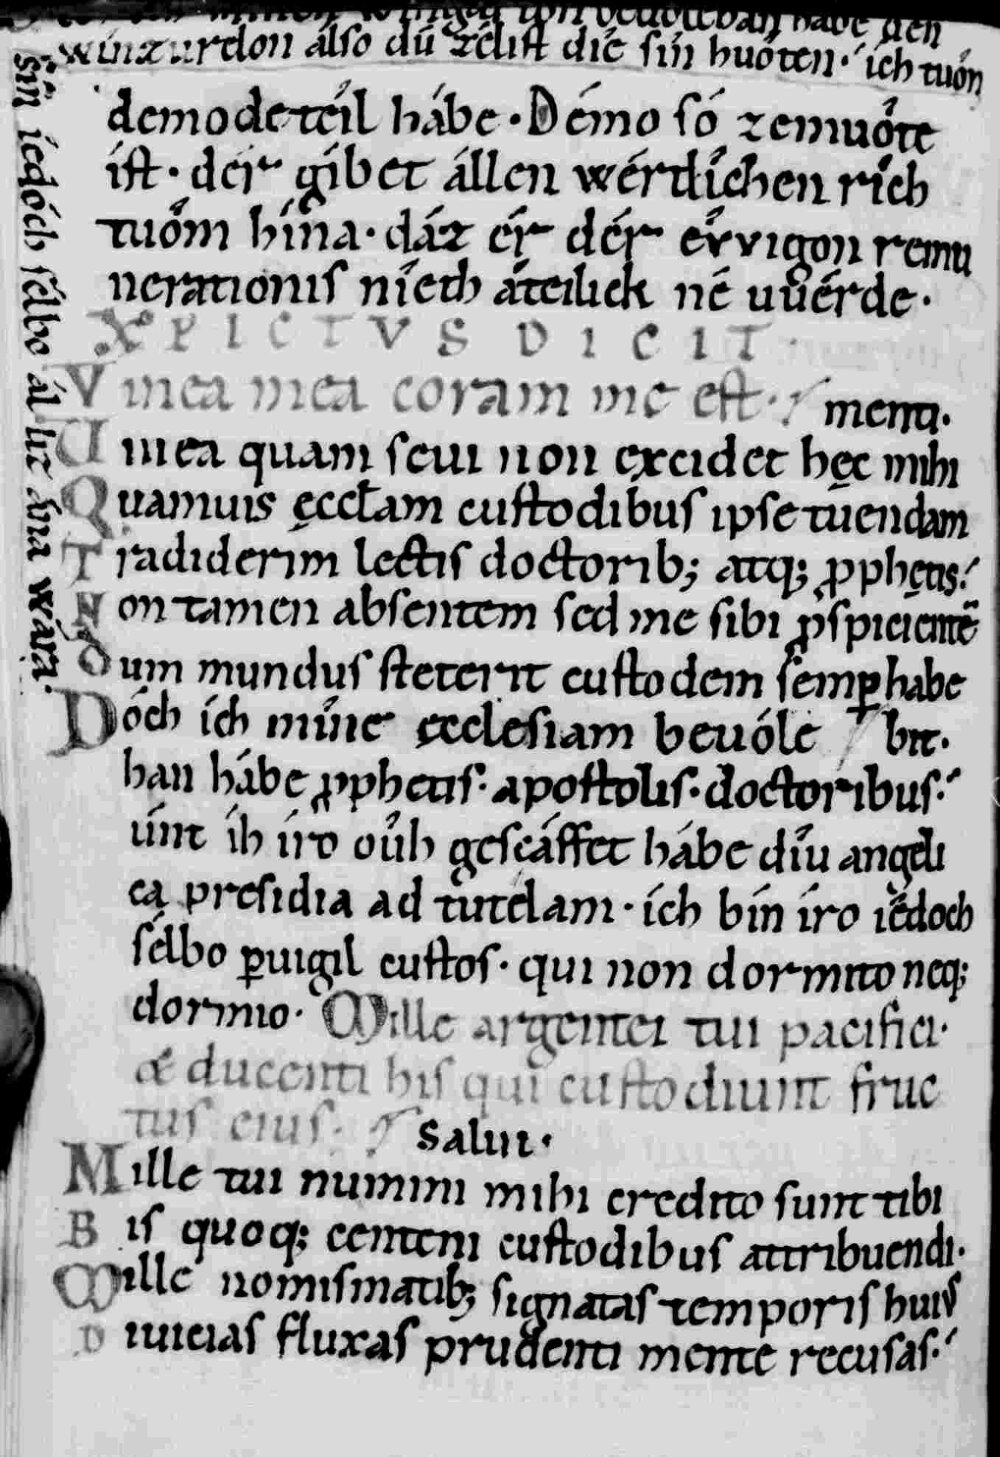 winzurdon álso dû zélist die sîn huôten· ích tuôn
demo deteíl hábe· Démo só zemuôte
ist· dér gíbet állen wérltlîchen rîch
tuôm hína· dáz ér dér êvvigon remu
nerationis nîeth áteilich né uuérde·
XPICTVS DICIT·
Vinea mea coram me est·
menti·
Uinea quam seui non excidet hęc mihi
Quamuis ęccłam custodibus ipse tuendam
Tradiderim lectis doctorib; atq; ꝓphetis·
Non tamen absentem sed me sibi ꝓspicientē
Dum mundus steterit custodem semꝑ habe
bit·
Dóch ích mîne ęcclesiam beuóle
han hábe ꝓphetis· apostolis· doctoribus·
únt íh íro oûh gescáffet hábe díu angeli
ca presidia ad tutelam· ích bín íro iêdoch
sélbo ꝑuigil custos· qui non dormito neq;
dormio· Mille argentei tui pacifici·
& ducenti his qui custodiunt fruc
tus eius·
Salui·
Mille tui nummi mihi credito sunt tibi
Bis quoq; centeni custodibus attribuendi·
Mille nomismatib; signatas temporis huiꝰ
Diuicias fluxas prudenti mente recusas·
sîn iedóch sélbo ál lúz ána wára·